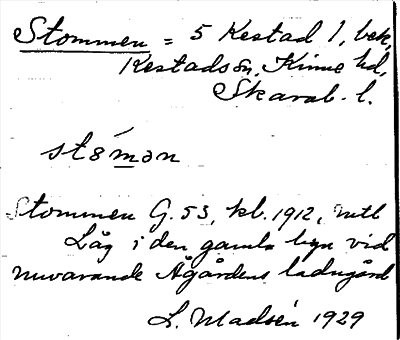 Stommen = 5 Kestad 1, bek,
Kestads sn, Kinne hd,
Skarab. l.
stómən
Stommen G. 53, kl. 1912, mtl
Låg i den gamla byn vid
nuvarande Ågårdens ladugård
L. Madsén 1929